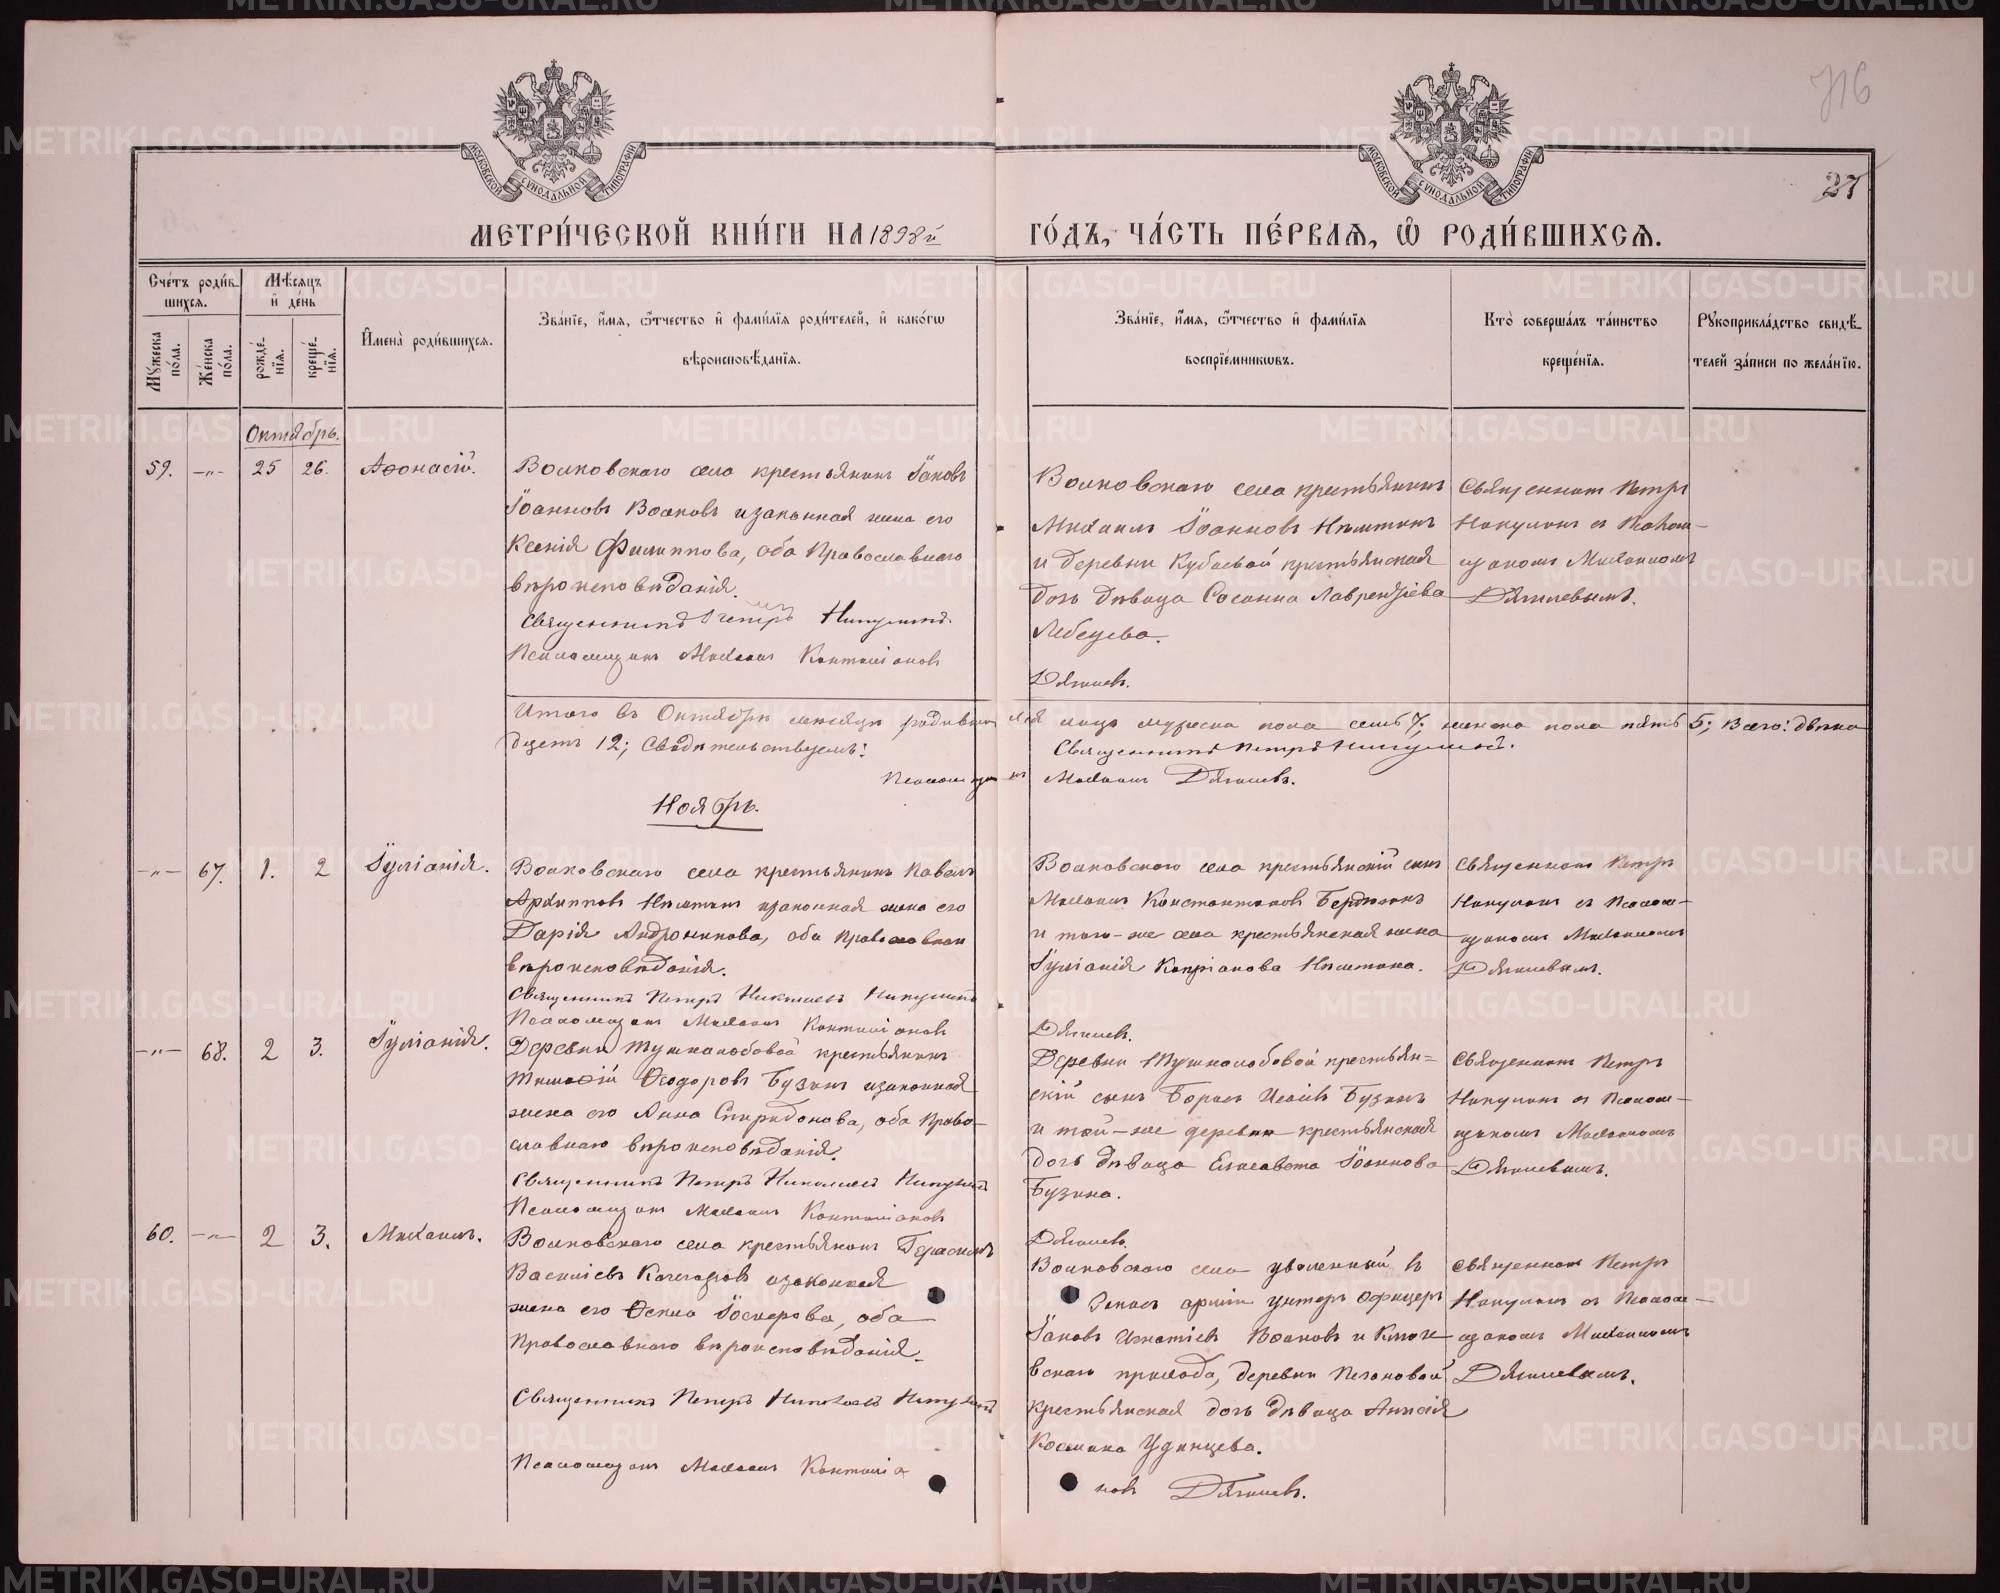 716
27
МОСКОВСКОЙ СУНОДАЛЬНОЙ ТИПОГРАФИИ
МОСКОВСКОЙ СУНОДАЛЬНОЙ ТИПОГРАФИИ
МЕТРИ́ЧЕСКОЙ КНИ́ГИ НА 1898й ГО́ДЪ, ЧА́СТЬ ПЕ́РВАЯ, Ѡ РОДИ́ВШИХСЯ.
Сче́тъ роди́вшихся.
Мѣ́сяцъ и де́нь
Му́жеска по́ла.
Же́нска по́ла.
рожде́нїя.
креще́нїя.
Имена̀ роди́вшихся.
Зва́нїе, и́мя, ѻ́тчество и фами́лїя роди́телей, и како́гѡ
вѣроисповѣ́данїя.
Зва́нїе, и́мя, ѻ́тчество и фами́лїя
воспрїе́мникѡвъ.
Кто̀ соверша́лъ та́инство
креще́нїя.
Рукоприкла́дство свидѣ́-
телей за́писи по жела́нїю.
Октябрь.
59. -„- 25 26. Аѳонасій.
Волковскаго села крестьянинъ Іаковъ
Іоанновъ Волковъ и законная жена его
Ксенія Филиппова, оба Православнаго
вѣроисповѣданія.
Священникъ Петръ Никулинъ.
Псаломщикъ Михаилъ
Волковскаго села крестьянинъ
Михаилъ Іоанновъ
и деревни Кубаевой крестьянская
дочь дѣвица Сосанна Лаврентіева
Лебедева.
Дягилевъ.
Священникъ Петръ
Никулинъ съ Псалом-
щикомъ Михаиломъ
Дягилевымъ.
Итого въ Октябрѣ мѣсяцѣ родившихся лицъ мужеска пола семь 7, женска пола пять 5; Всего: двѣна
дцать 12; Свидѣтельствуемъ: Священникъ Петръ Никулинъ.
Псаломщикъ Михаилъ Дягилевъ.
Ноябрь.
-„- 67. 1. 2 Іуліанія.
Волковскаго села крестьянинъ Павелъ
Архипповъ и законная жена его
Дарія Андроникова, оба Православнаго
вѣроисповѣданія.
Священникъ Петръ Николаевъ Никулинъ
Псаломщикъ Михаилъ
Волковскаго села крестьянскій сынъ
Михаилъ Константиновъ
и того-же села крестьянская жена
Іуліанія Кипріанова
Дягилевъ.
Священникъ Петръ
Никулинъ съ Псалом-
щикомъ Михаиломъ
Дягилевымъ.
-„- 68. 2 3. Іуліанія.
Деревни крестьянинъ
Тимоѳій Ѳеодоровъ Бузинъ и законная
жена его Анна Спиридонова, оба Право-
славнаго вѣроисповѣданія.
Священникъ Петръ Николаевъ Никулинъ
Псаломщикъ Михаилъ
Деревни крестьян=
скій сынъ Борисъ Исаіевъ Бузинъ
и той-же деревни крестьянская
дочь дѣвица Елисавета Іоаннова
Бузина.
Дягилевъ.
Священникъ Петръ
Никулинъ съ Псалом-
щикомъ Михаиломъ
Дягилевымъ.
60. -„- 2 3. Михаилъ.
Волковскаго села крестьянинъ Герасимъ
Василіевъ и законная
жена его оба
Православнаго вѣроисповѣданія.
Священникъ Петръ Николаевъ Никулинъ
Псаломщикъ Михаилъ
Волковскаго села уволенный въ
Запасъ арміи унтеръ офицеръ
Іаковъ Игнатіевъ Волковъ и
прихода, деревни
крестьянская дочь дѣвица Анисія
Космина Удинцева.
Дягилевъ.
Священникъ Петръ
Никулинъ съ Псалом-
щикомъ Михаиломъ
Дягилевымъ.
METRIKI.GASO-URAL.RU